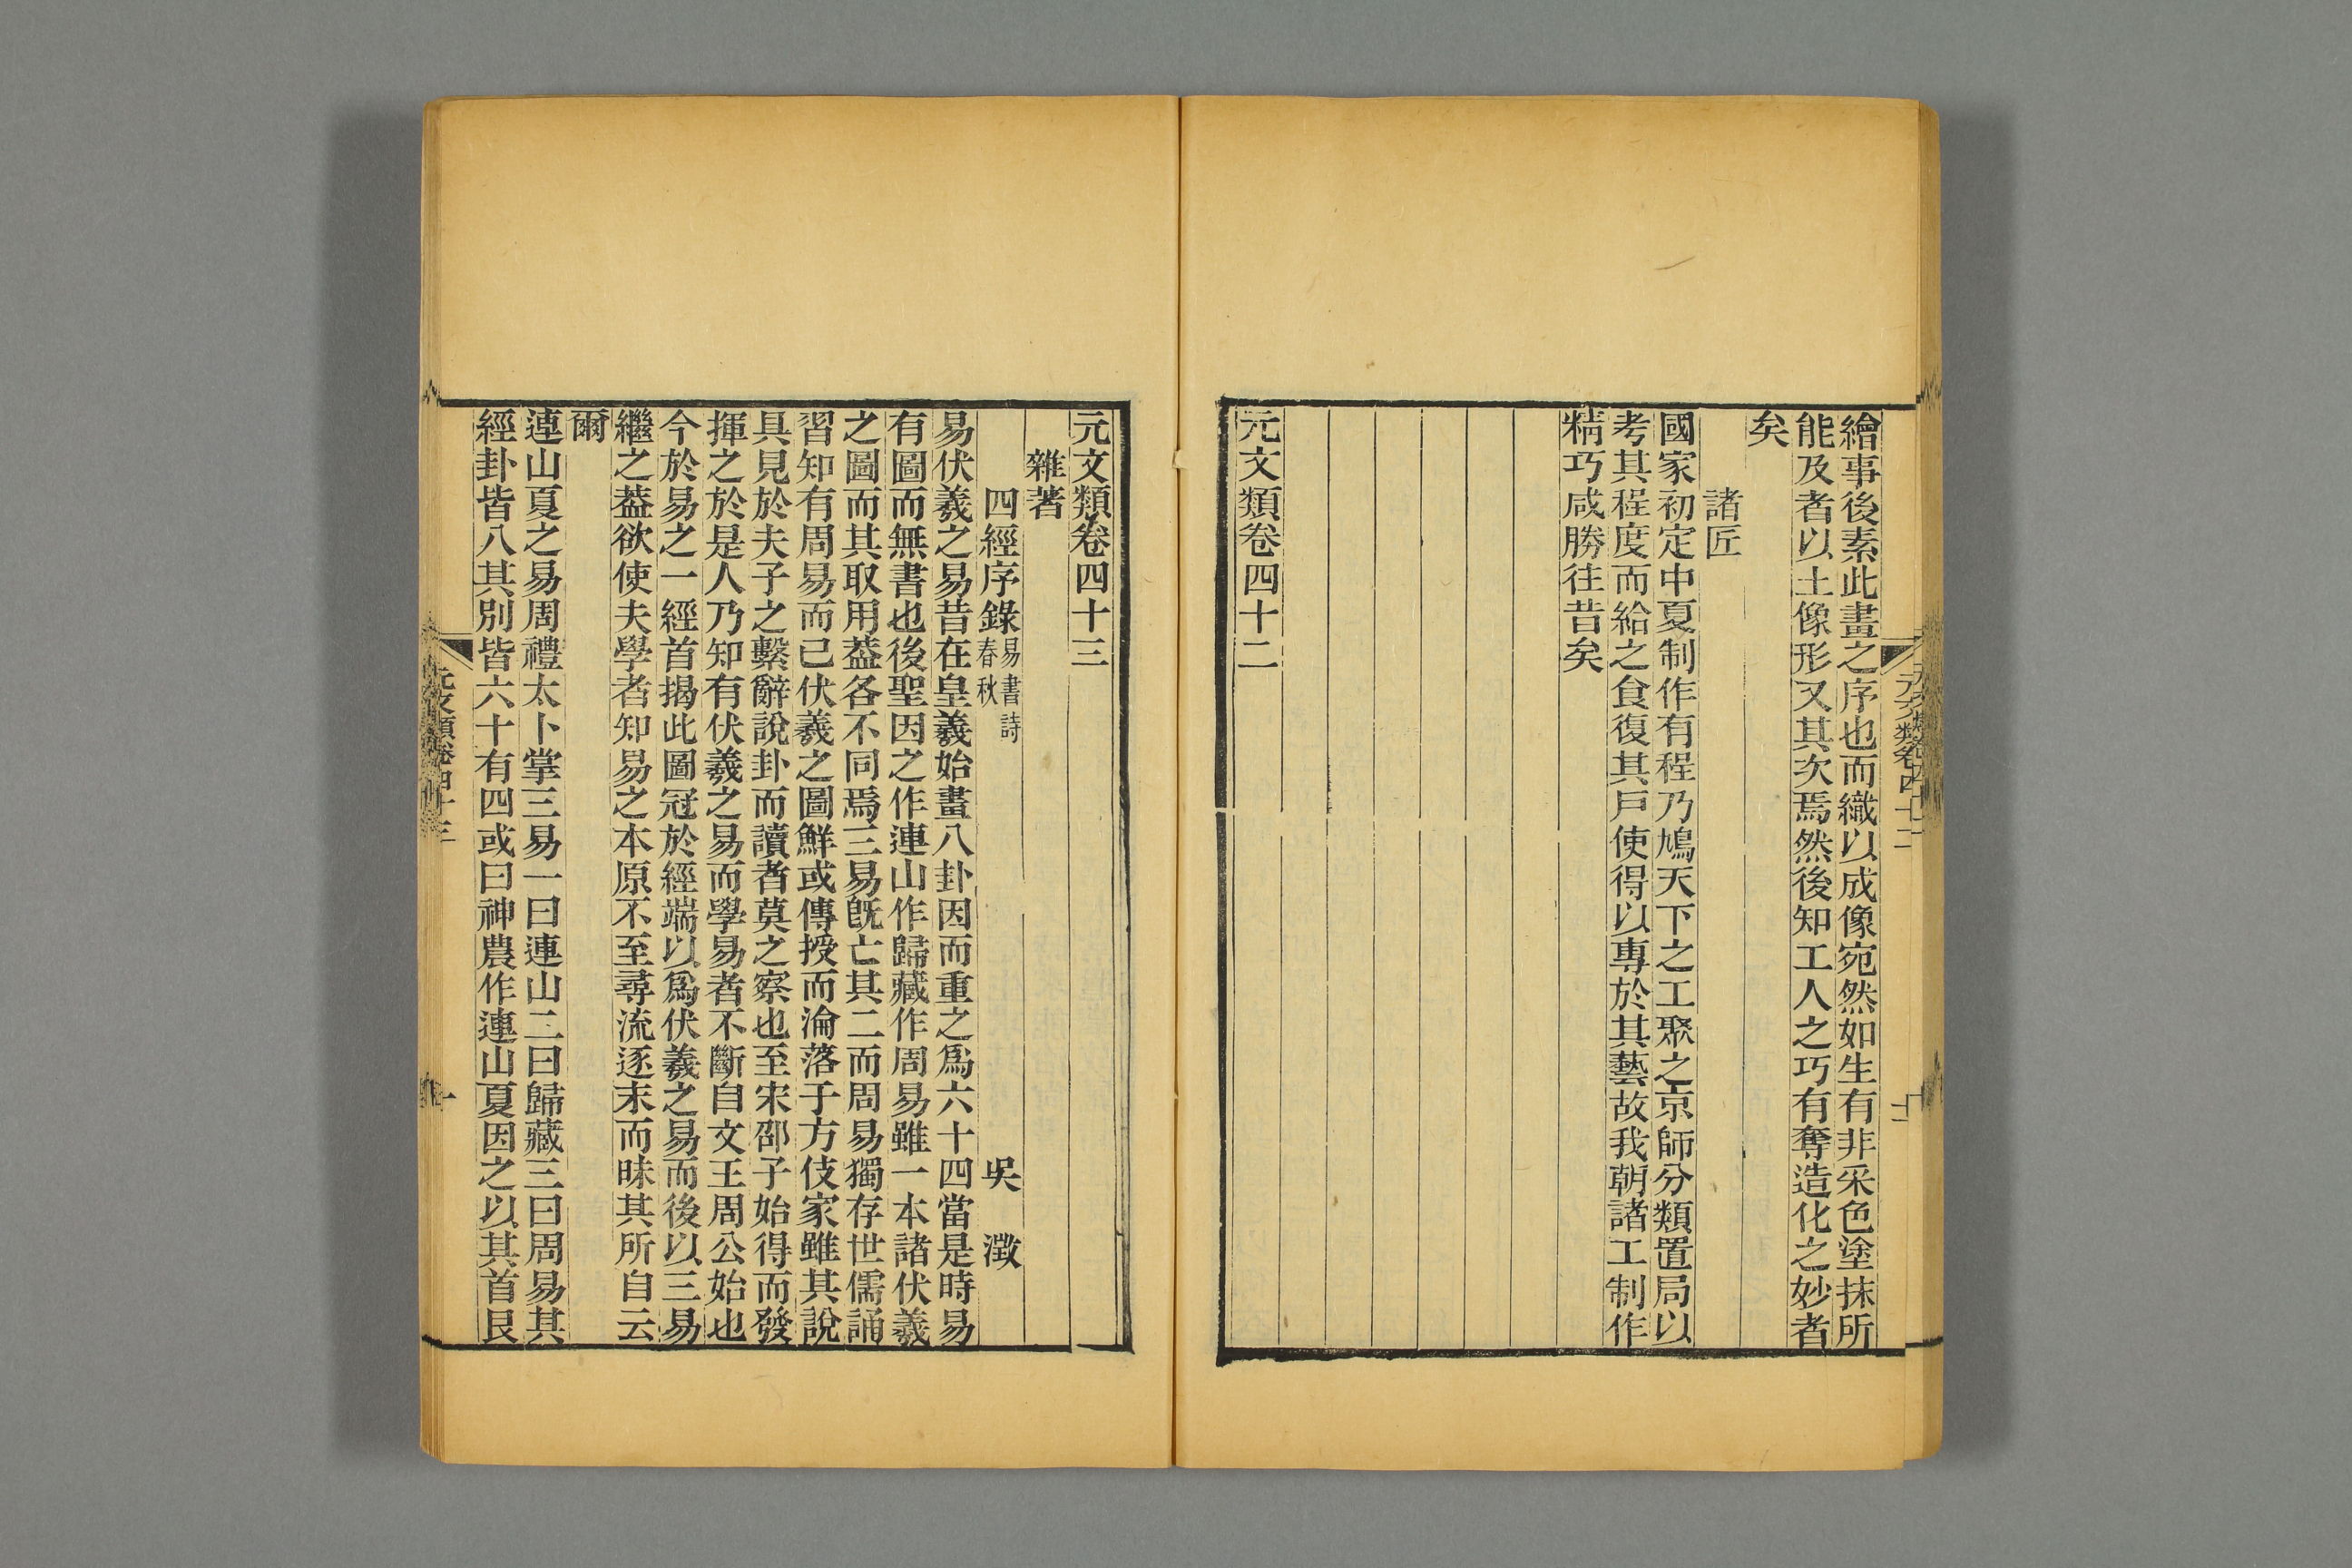 繪事後素此畫之序也而織以成像宛然如生有非采色塗抹所
能及者以土像形又其次焉然後知工人之巧有奪造化之妙者
矣
諸匠
國家初定中夏制作有程乃鳩天下之工聚之京師分類置局以
考其程度而給之食復其戶使得以專於其藝故我朝諸工制作
精巧咸勝往昔矣
元文類卷四十二
元文類卷四十三
雜著
四經序錄易書詩春秋 吳澂
易伏羲之易昔在皇羲始畫八卦因而重之爲六十四當是時易
有圖而無書也後聖因之作連山作歸藏作周易雖一本諸伏羲
之圖而其取用葢各不同焉三易旣亡其二而周易獨存世儒誦
習知有周易而已伏羲之圖鮮或傳授而淪落于方伎家雖其說
具見於夫子之繫辭說卦而讀者莫之察也至宋邵子始得而發
揮之於是人乃知有伏羲之易而學易者不斷自文王周公始也
今於易之一經首揭此圖冠於經端以爲伏羲之易而後以三易
繼之葢欲使夫學者知易之本原不至尋流逐末而昧其所自云
爾
連山夏之易周禮太卜掌三易一曰連山二曰歸藏三曰周易其
經卦皆八其別皆六十有四或曰神農作連山夏因之以其首艮
元文類卷四十三
一